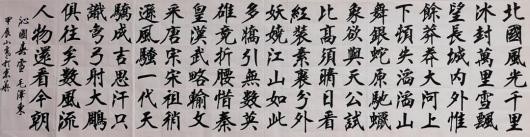 北國風光千里
冰封萬里雪飄
望長城內外惟
餘莽莽大河上
下頓失滔滔山
舞銀蛇原馳蠟
象欲與天公試
比高須晴日看
紅裝素裹分外
妖嬈江山如此
多嬌引無數英
雄競折腰惜秦
皇漢武略輸文
采唐宗宋祖稍
遜風騷一代天
驕成吉思汗只
識彎弓射大鵰
俱往矣數風流
人物還看今朝
沁園春雪 毛澤東
甲辰小寒於京華